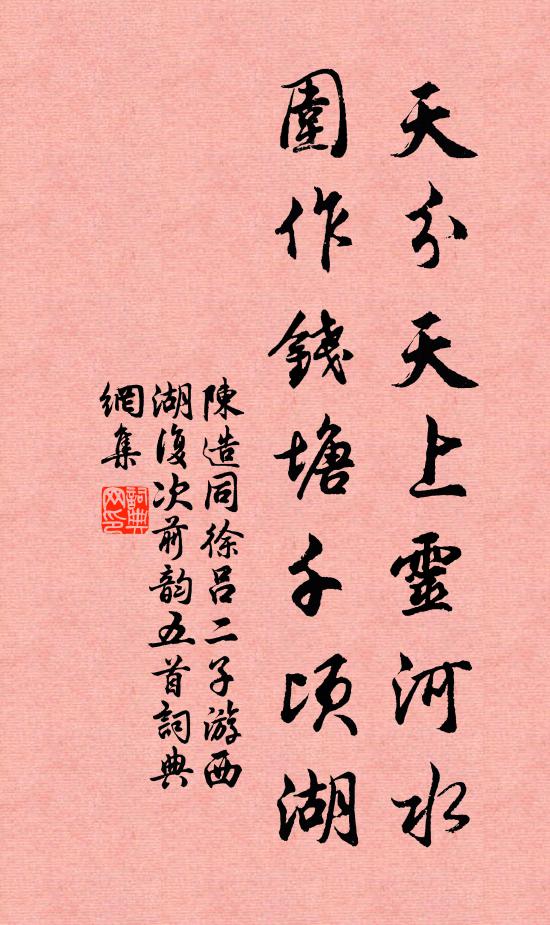 天分天上靈河水
圍作錢塘千頃湖
陳造同徐呂二子游西
湖復次前韵五首詞典
網集
詞典
网印